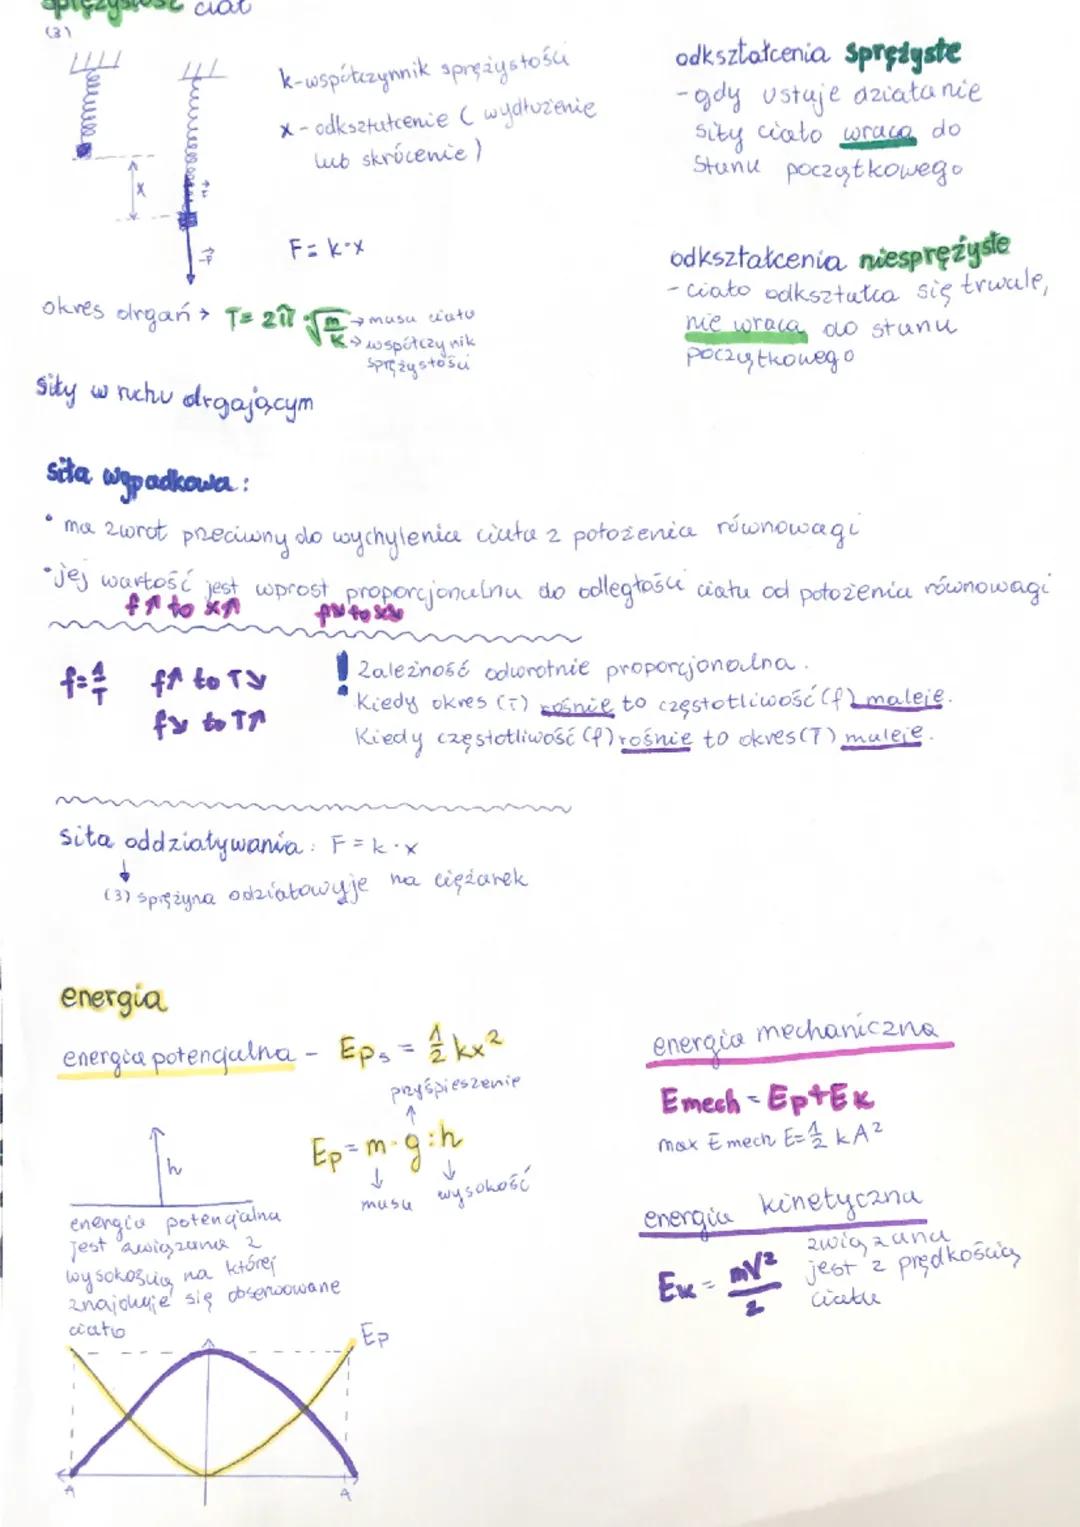 sprężystość ciał
(3)
k-współczynnik sprężystości
x - odkształcenie ( wydłużenie
lub skrócenie )
x
F
F
F = k·x
odkształcenia sprężyste
- gdy ustaje działanie
siły ciało wraca do
stanu początkowego
odkształcenia niesprężyste
- ciało odkształca się trwale,
nie wraca do stanu
początkowego
okres drgań → T = 2π · √m/k → masa ciała
→ współczynnik
sprężystości
siły w ruchu drgającym
siła wypadkowa :
• ma zwrot przeciwny do wychylenia ciała z położenia równowagi
• jej wartość jest wprost proporcjonalna do odległości ciała od położenia równowagi
f↗ to x↗ f↘ to x↘
f = 1/T f↗ to T↘
f↘ to T↗
! Zależność odwrotnie proporcjonalna.
Kiedy okres (T) rośnie to częstotliwość (f) maleje.
Kiedy częstotliwość (f) rośnie to okres (T) maleje.
siła oddziaływania : F = k · x
↓
(3) sprężyna odziałowyje na ciężarek
energia
energia potencjalna - Eps = 1/2 kx²
przyśpieszenie
↑
Ep = m · g · h
↓ ↓
masa wysokość
h
energia potencjalna
jest związana z
wysokością na której
znajduje się obserwowane
ciało
energia mechaniczna
Emech = Ep + Ek
max Emech E = 1/2 kA²
energia kinetyczna
Ek = mV²/2
związana
jest z prędkością
ciała
Ep
A
A